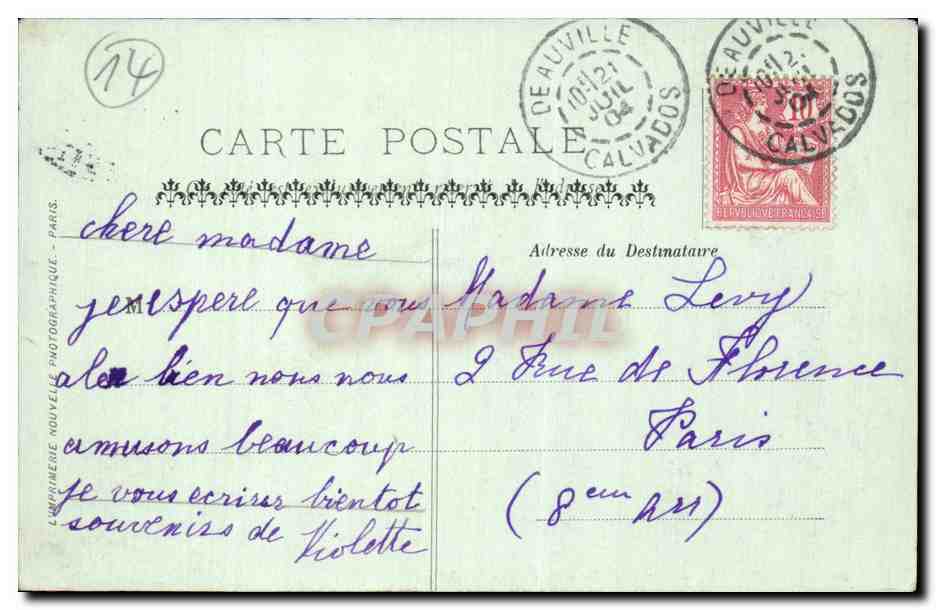 14
CARTE POSTALE
DEAUVILLE
10 21
JUIL
04
CALVADOS
DEAUVILLE
10 2
04
CALVADOS
10
REPVBLIQVE FRANÇAISE
L'IMPRIMERIE NOUVELLE PHOTOGRAPHIQUE - PARIS.
chere madame
M
je espere que vous
aler bien nous nous
amusons beaucoup
je vous ecrirer bientot
souvenirs de
Violette
Adresse du Destinataire
Madame Levy
2 Rue de Florence
Paris
(8eme arr)
CPAPHIL